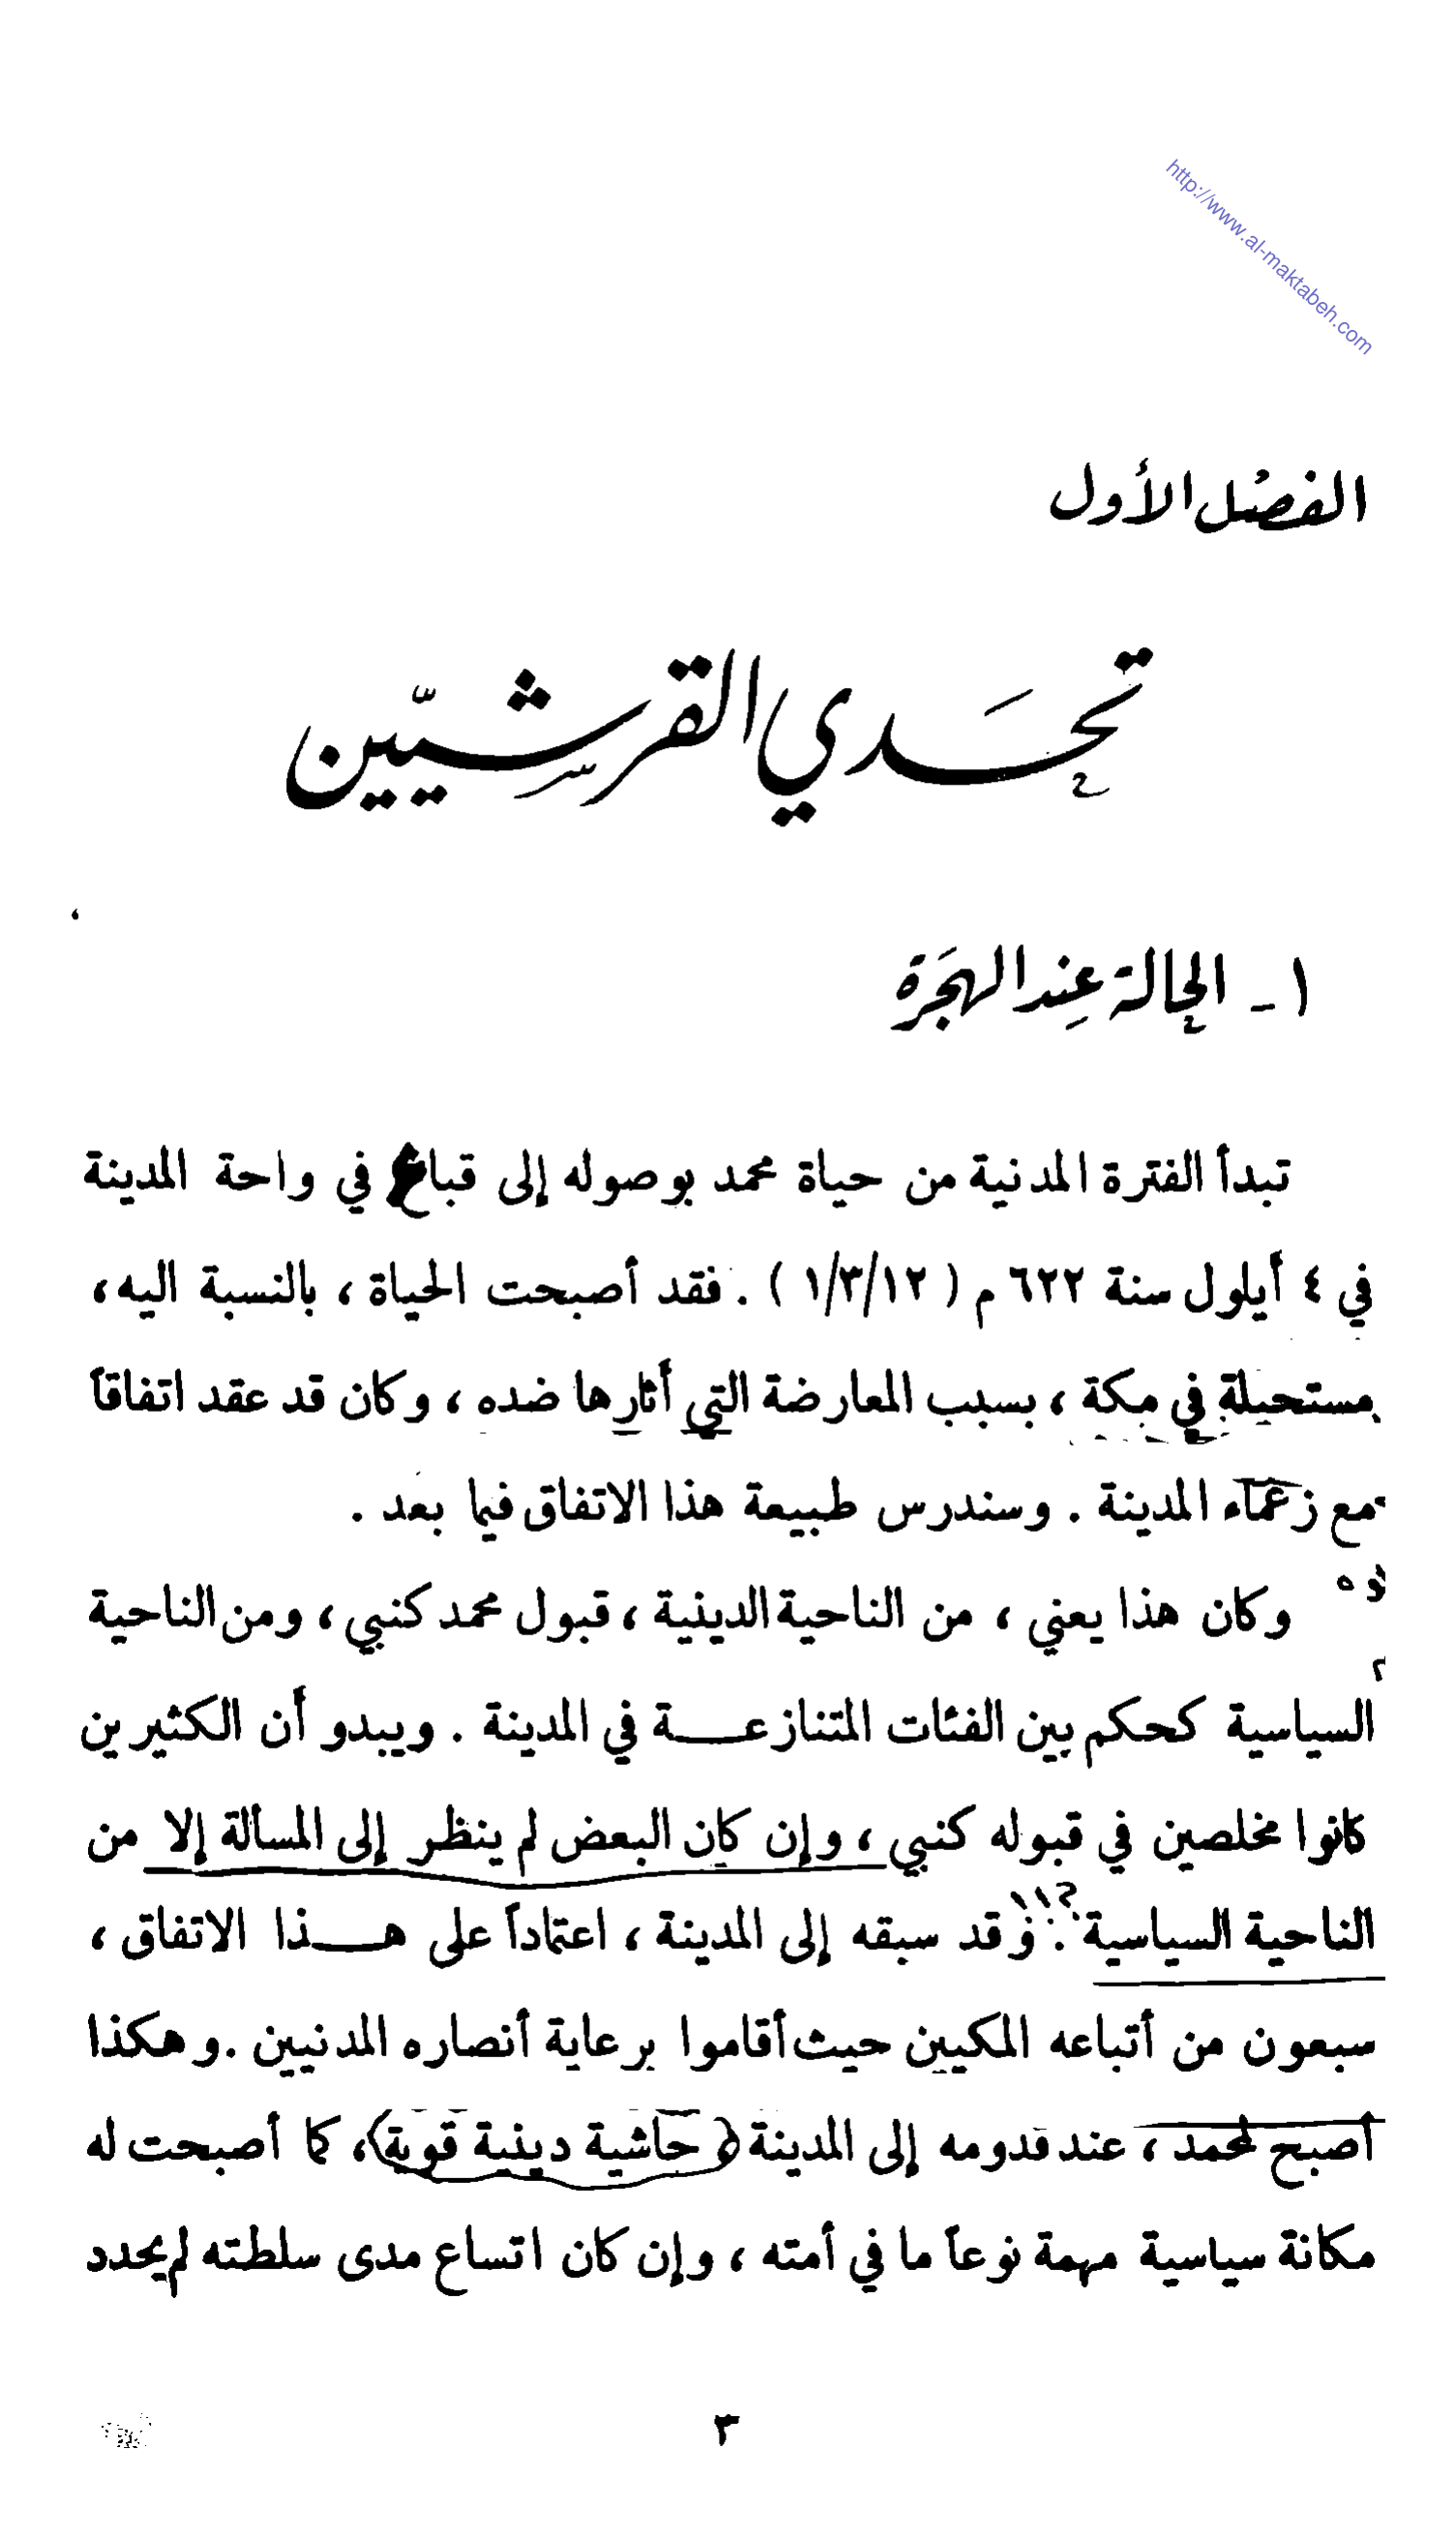 http://www.al-maktabeh.com
الفصل الأول
تحدي القرشيّين
١ - الحالة عِند الهجَرة
تبدأ الفترة المدنية من حياة محمد بوصوله إلى قباء في واحة المدينة
في ٤ أيلول سنة ٦٢٢ م ( ١/٣/١٢ ) . فقد أصبحت الحياة ، بالنسبة اليه ،
مستحيلة في مكة ، بسبب المعارضة التي أثارها ضده ، وكان قد عقد اتفاقاً
مع زعماء المدينة . وسندرس طبيعة هذا الاتفاق فيما بعد .
وكان هذا يعني ، من الناحية الدينية ، قبول محمد كنبي ، ومن الناحية
السياسية كحكم بين الفئات المتنازعـة في المدينة . ويبدو أن الكثيرين
كانوا مخلصين في قبوله كنبي ، وإن كان البعض لم ينظر إلى المسألة إلا من
الناحية السياسية . وقد سبقه إلى المدينة ، اعتماداً على هـذا الاتفاق ،
سبعون من أتباعه المكيين حيث أقاموا برعاية أنصاره المدنيين . وهكذا
أصبح لمحمد ، عند قدومه إلى المدينة ( حاشية دينية قوية ) ، كما أصبحت له
مكانة سياسية مهمة نوعاً ما في أمته ، وإن كان اتساع مدى سلطته لم يحدد
٣